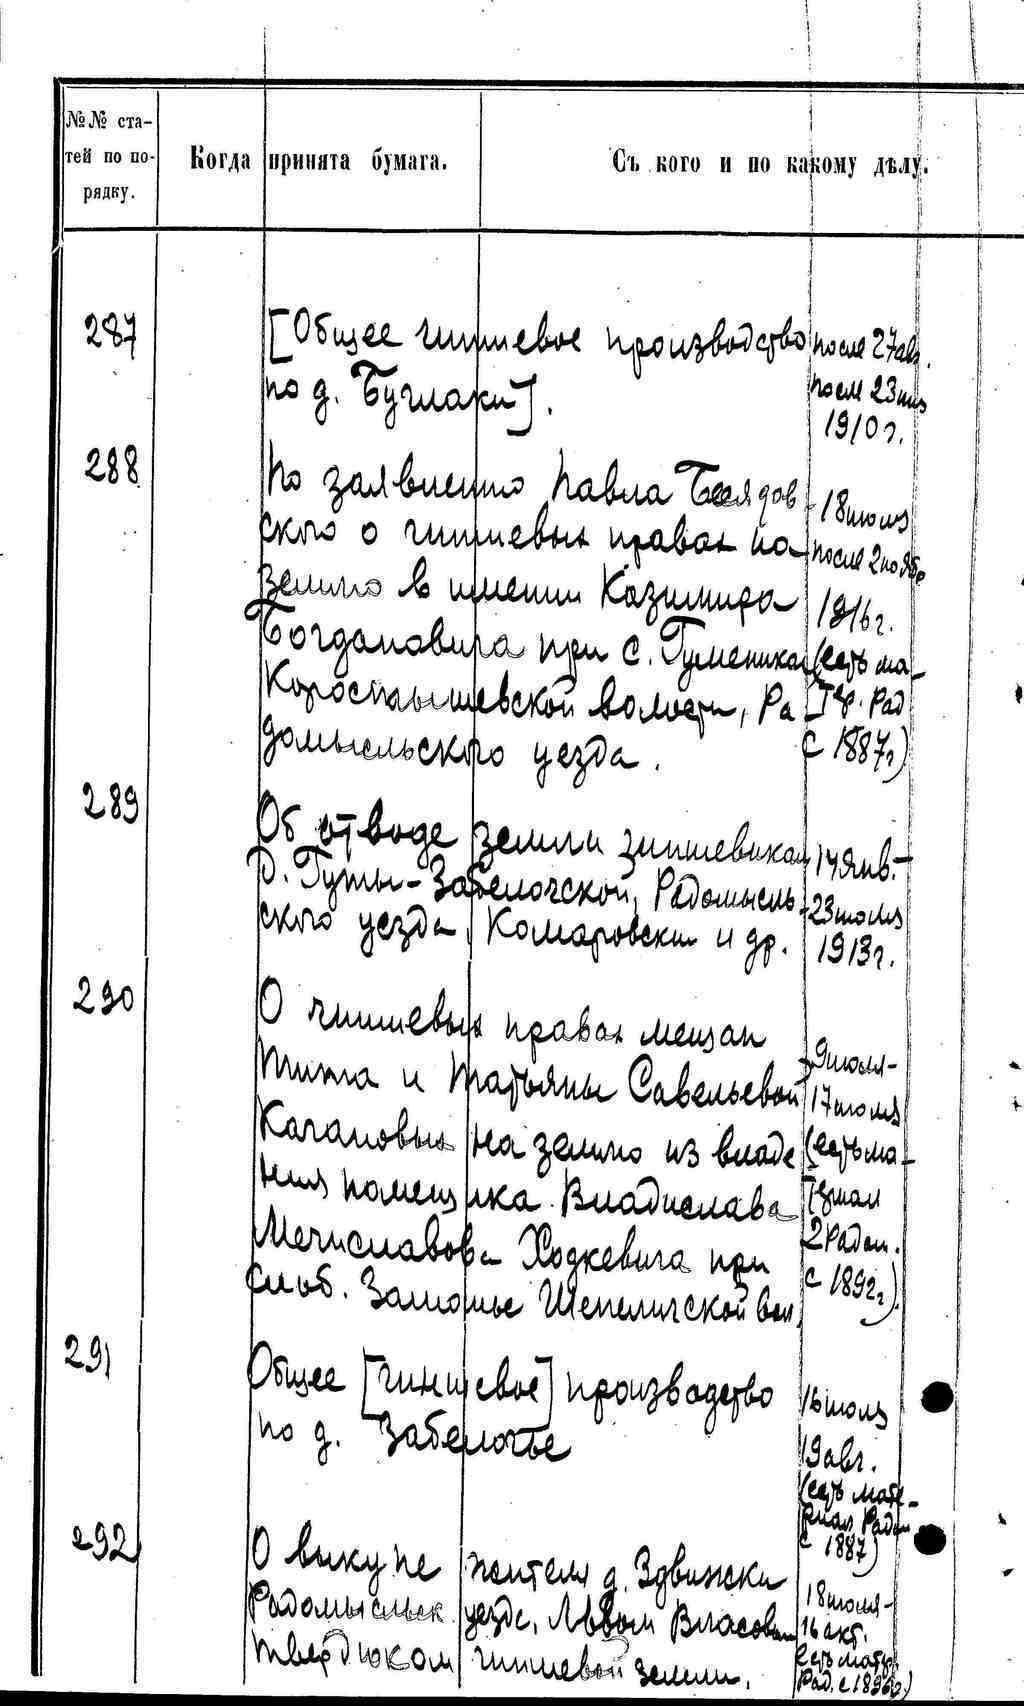 №№ ста-
тей по по-
рядку.
Когда принята бумага.
Съ кого и по какому дѣлу.
287
[Общее чиншевое производство
по д. Буглаки].
после 27 авг.
после 23
1910 г.
288
По заявлению Павла Беядов
ского о чиншевых правах на
землю в имении Казимира
Богдановича при с. Гуменниках
Коростышевской волости, Ра
домысльского уезда.
18 июля
после 2 ноябр
1916 г.
(есть ма-
тер. Рад
с 1887 г)
289
Об отводе земли чиншевикам
д. Гуты-Забелочской, Радомысль
ского уезда, Комаровским и др.
14 янв.-
23 июля
1913 г.
290
О чиншевых правах мещан
Тита и Татьяны Савельевой
Кагановых на землю из владе
ния помещика Владислава
Мечиславова Ходкевича при
слоб. Залюмье Шепеличской вол.
9 июля-
17 июля
(есть ма-
териал
2 Радом.
с 1892 г).
291
Общее [чиншевое] производство
по д. Забелочье
16 июля
19 авг.
(есть мате-
риал Радом
с 1887)
292
О выкупе жителя д. Здвижки
Радомысльск. уезда, Львом Власовым
Твердюком чиншевой земли.
18 июля-
16 окт.
есть матер
Рад. с 1896 г.)